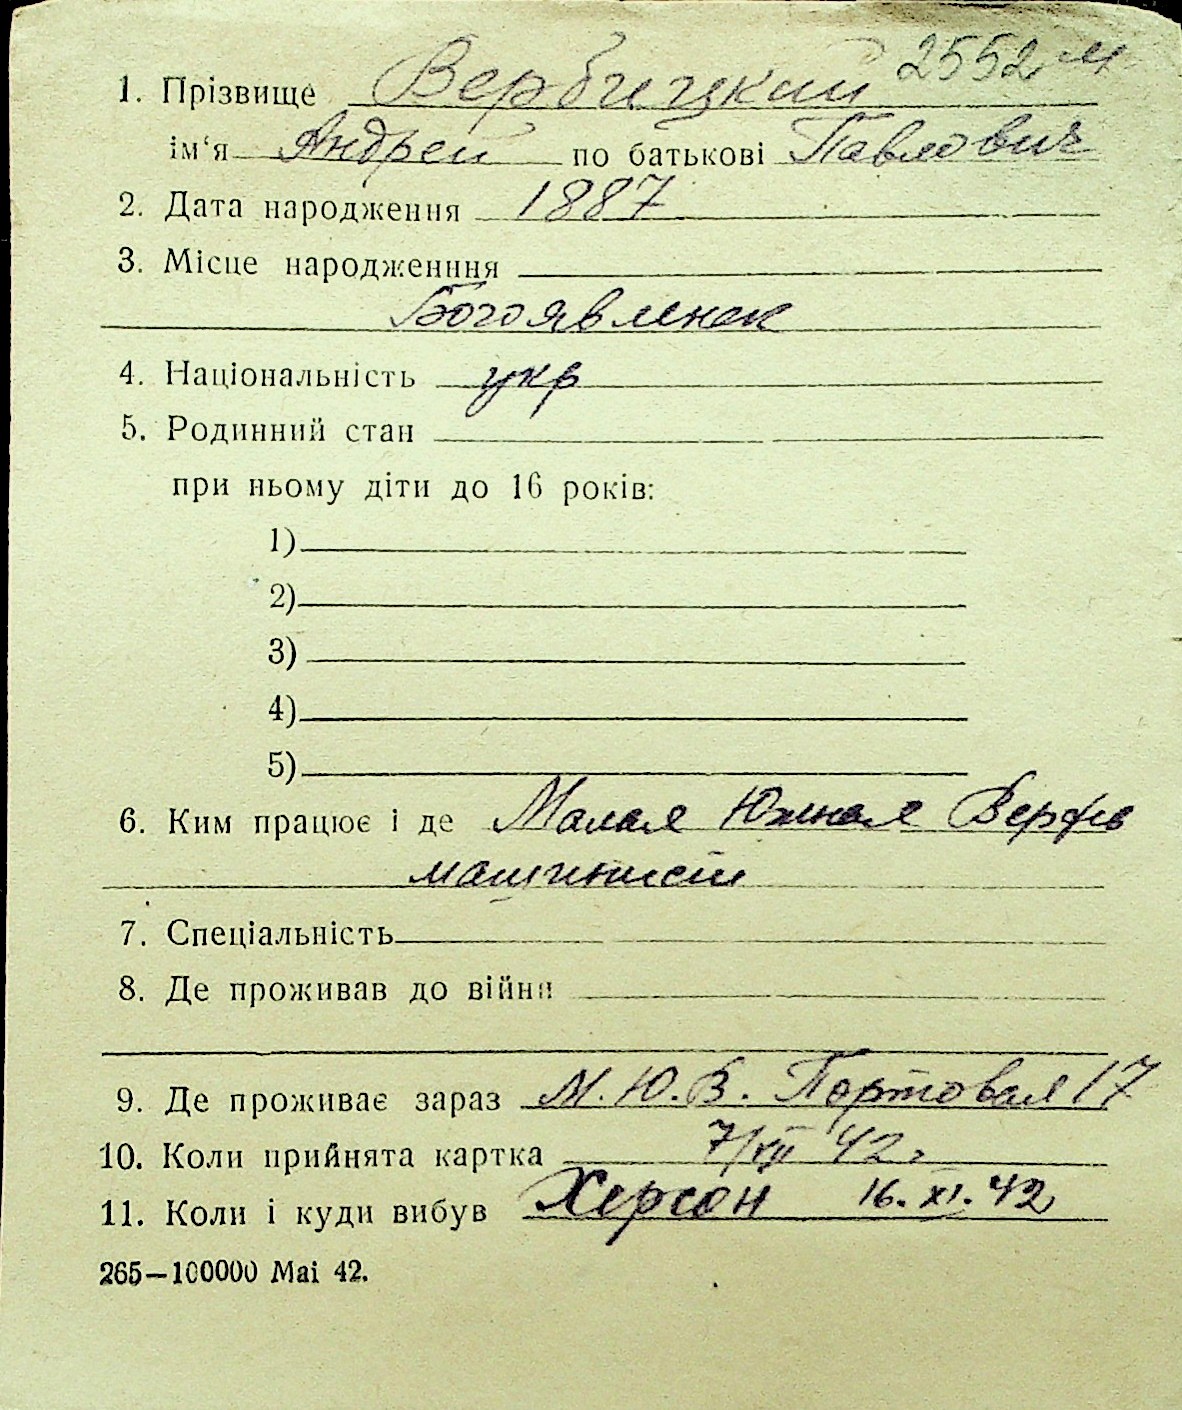 2552 м
1. Прізвище Вербицкий
ім'я Андрей по батькові Павлович
2. Дата народження 1887
3. Місце народженння
Богоявленск
4. Національність укр
5. Родинний стан
при ньому діти до 16 років:
1)
2)
3)
4)
5)
6. Ким працює і де Малая Южная Верфь
машинист
7. Спеціальність
8. Де проживав до війни
9. Де проживає зараз М.Ю.В. Портовая 17
10. Коли прийнята картка 7/VII 42.
11. Коли і куди вибув Херсон 16.XI.42
265—100000 Mai 42.